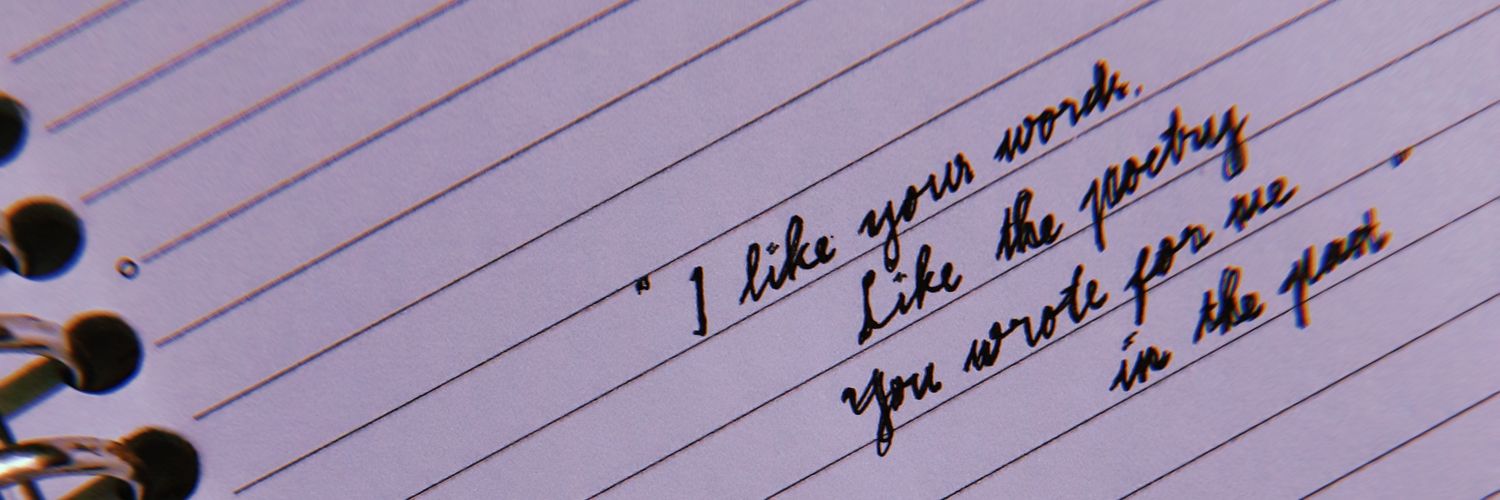 " I like your words.
Like the poetry
You wrote for me "
in the past